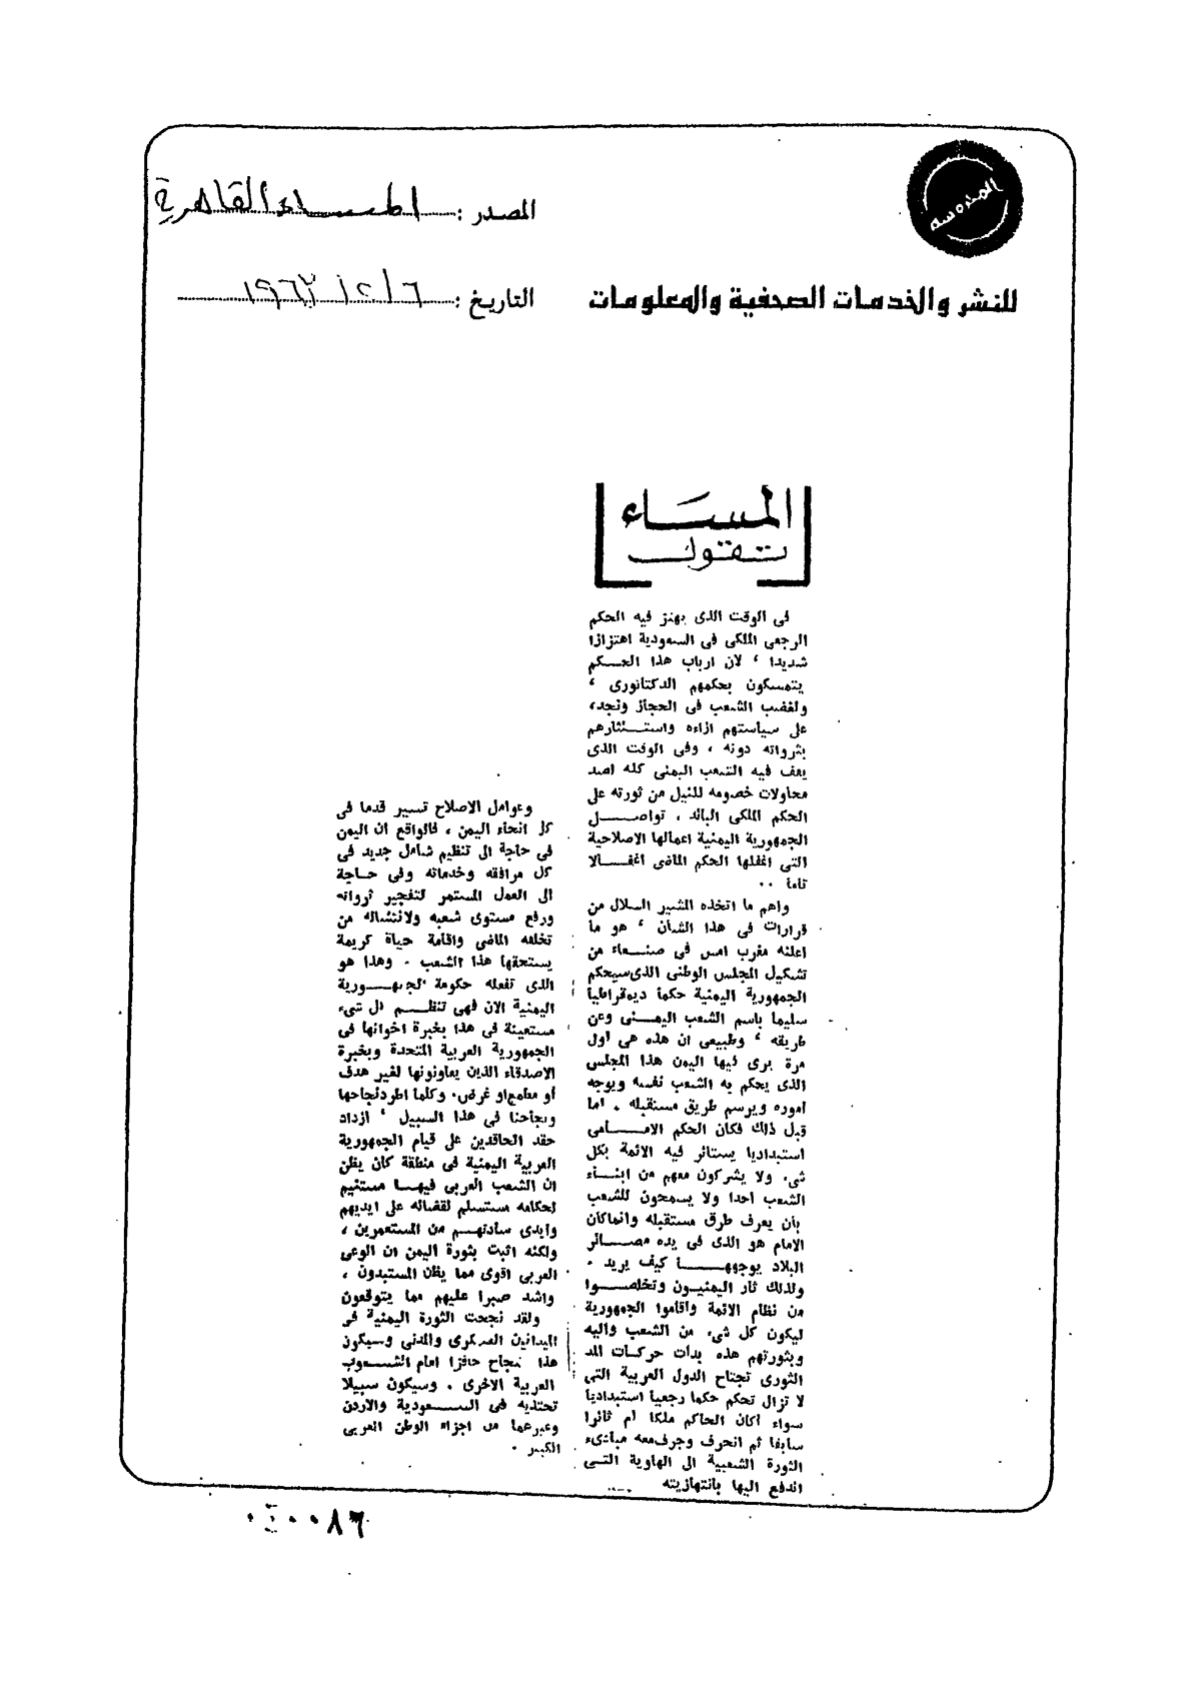 المصدر : المساء القاهرية
التاريخ : ٦ / ٢ / ١٩٦٣
للنشر والخدمات الصحفية والمعلومات
المساء
تقول
فى الوقت الذى يهتز فيه الحكم
الرجعى الملكى فى السعودية اهتزازا
شديدا ، لان ارباب هذا الحكم
يتمسكون بحكمهم الدكتاتورى ،
ولغضب الشعب فى الحجاز ونجد،
على سياستهم ازاءه واستئثارهم
بثرواته دونه ، وفى الوقت الذى
يقف فيه الشعب اليمنى كله لصد
محاولات خصومه للنيل من ثورته على
الحكم الملكى البائد ، تواصل
الجمهورية اليمنية اعمالها الاصلاحية
التى اغفلها الحكم الماضى اغفالا
تاما ..
واهم ما اتخذه المشير السلال من
قرارات فى هذا الشأن ، هو ما
اعلنه مغرب امس فى صنعاء من
تشكيل المجلس الوطنى الذى سيحكم
الجمهورية اليمنية حكما ديموقراطيا
سليما باسم الشعب اليمنى وعن
طريقه ، وطبيعى ان هذه هى اول
مرة يرى فيها اليمن هذا المجلس
الذى يحكم به الشعب نفسه ويوجه
اموره ويرسم طريق مستقبله . اما
قبل ذلك فكان الحكم الامامى
استبداديا يستاثر فيه الائمة بكل
شىء ولا يشركون معهم من ابناء
الشعب احدا ولا يسمحون للشعب
بأن يعرف طرق مستقبله وانما كان
الامام هو الذى فى يده مصائر
البلاد يوجهها كيف يريد .
ولذلك ثار اليمنيون وتخلصوا
من نظام الائمة واقاموا الجمهورية
ليكون كل شىء من الشعب واليه
وبثورتهم هذه بدات حركات المد
الثورى تجتاح الدول العربية التى
لا تزال تحكم حكما رجعيا استبداديا
سواء أكان الحاكم ملكا أم ثائرا
سابقا ثم انحرف وجرف معه مبادىء
الثورة الشعبية الى الهاوية التى
اندفع اليها بانتهازيته
وعوامل الاصلاح تسير قدما فى
كل انحاء اليمن ، فالواقع ان اليمن
فى حاجة الى تنظيم شامل جديد فى
كل مرافقه وخدماته وفى حاجة
الى العمل المستمر لتفجير ثرواته
ورفع مستوى شعبه ولانتشاله من
تخلفه الماضى واقامة حياة كريمة
يستحقها هذا الشعب . وهذا هو
الذى تفعله حكومة الجمهورية
اليمنية الان فهى تنظم كل شىء
مستعينة فى هذا بخبرة اخوانها فى
الجمهورية العربية المتحدة وبخبرة
الاصدقاء الذين يعاونونها لغير هدف
أو مطمع او غرض. وكلما اطرد نجاحها
ونجاحنا فى هذا السبيل ، ازداد
حقد الحاقدين على قيام الجمهورية
العربية اليمنية فى منطقة كان يظن
ان الشعب العربى فيها مستنيم
لحكامه مستسلم لقضائه على ايديهم
وايدى سادتهم من المستعمرين ،
ولكنه اثبت بثورة اليمن ان الوعى
العربى اقوى مما يظن المستبدون ،
واشد صبرا عليهم مما يتوقعون
ولقد نجحت الثورة اليمنية فى
الميدانين العسكرى والمدنى وسيكون
هذا نجاح حافزا امام الشعوب
العربية الاخرى . وسيكون سبيلا
تحتذيه فى السعودية والاردن
وغيرهما من اجزاء الوطن العربى
الكبير .